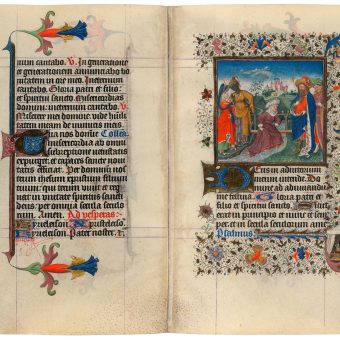 num cantabo. V. In generatione
et generationem annunciabo ve
ritatem in ore meo. In eternum
cantabo. Gloria patri et filio:
et spiritui sancto. Misericordias
domini: in eternum cantabo. V.
Miserere mei domine. vide humili
tatem meam de inimicis meis.
misericordia ab omni
et expurget: et capaces sancte noui
tatis efficiat. Per dominum nos
trum ihesum christum filium
tuum: qui tecum vivit et reg
nat in unitate spiritus sancti
deus: per omnia secula seculo
rum. Amen. Ad vesperas:
Kyrieleison. Pater noster.
Deus in adiutorium
meum intende. Do
mine ad adiuvandu
me festina. Gloria patri et
filio et spiritui sancto. Sicut
erat in principio et nunc et sem
per: et in secula seculorum amen
Psalmus